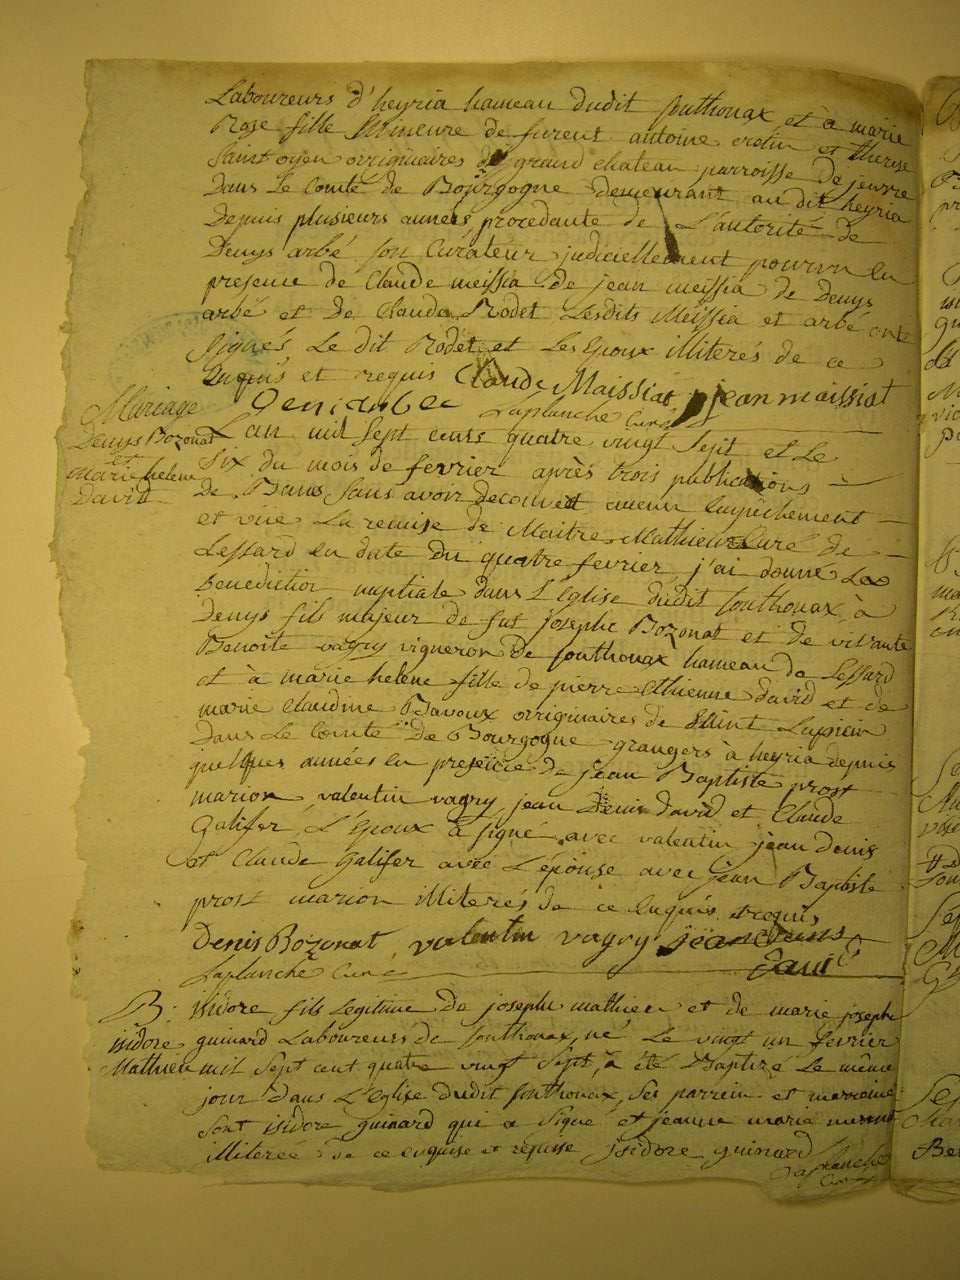 Laboureurs d'heyria hameau dudit Southonax et à marie
Rose fille Mineure de furent antoine crotin et therese
Saint oyen originaires de grand chateau parroisse de jeurre
Dans Le Comté de Bourgogne demeurant au dit heyria
Depuis plusieurs années procedante de L'autorité de
Denys arbé son Curateur judiciellement pourvu En
presence de Claude meissia de jean meissia de Denys
arbé et de Claude Rodet Lesdits Meissia et arbé ont
Signés Le dit Rodet et Les Epoux illiterés de ce
Enquis et requis Claude Maissiat jean maissiat
Laplanche Curé
Mariage
Denys Bozonat
et
marie helene
David
L'an mil Sept cents quatre vingt Sept et Le
Six du mois de fevrier après trois publications
De Bans Sans avoir decouvert aucun Empêchement
et vüe La remise de Maitre Mathieu Curé de
Lessard En date du quatre fevrier j'ai donné La
Benediction nuptiale dans L'Eglise dudit Southonax à
Denys fils majeur de fut josephe Bozonat et de vivante
Benoîte vagry vigneron de Southonax hameau de Lessard
et à marie helene fille de pierre Ethienne David et de
marie Claudine Bavoux originaires de Saint Lupicin
Dans Le Comté de Bourgogne grangers à heyria depuis
quelques années En presence de jean Baptiste prost
marion, valentin vagry, jean Denis David et Claude
Galifer, L'Epoux à signé avec valentin jean denis
et Claude Galifer avec L'épouse avec jean Baptiste
prost marion illiterés de ce Enquis et requis
Denis Bozonat valentin vagry jean denis
David
Laplanche Curé
B:
isidore
Mathieu
isidore fils Legitime de joseph mathieu et de marie josephe
guinard Laboureurs de Southonax, né Le vingt un fevrier
mil Sept cent quatre vingt Sept, à été Baptizé Le même
jour dans L'Eglise dudit Southonax, Ses parrein et marreine
Sont isidore guinard qui a Signé et jeanne marie
illiterée de ce enquise et requise isidore guinard
Laplanche
Curé